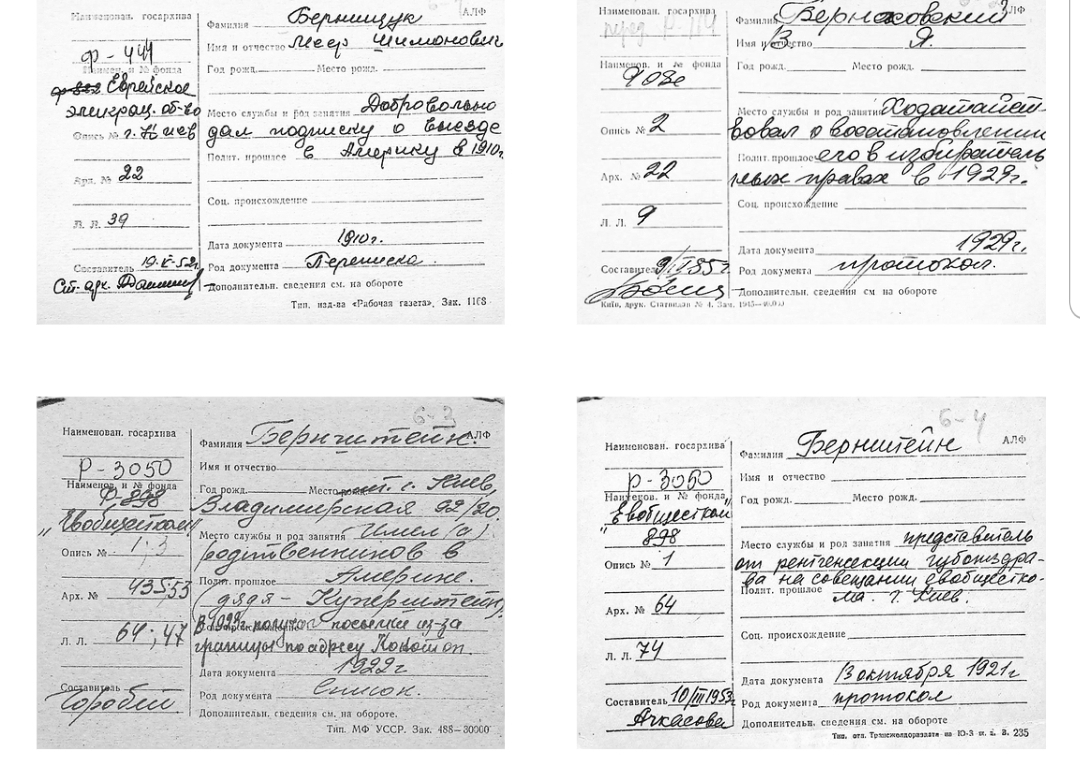 Наименован. госархива
Ф-441
Наимен. и № фонда
Еврейское
эмиграц. об-во
Опись № г. Киев
Арх. № 22
Л. Л. 39
Составитель 19.V-52г.
Ст. арх.
АЛФ
Фамилия Бернищук
Имя и отчество Меер Шимонович
Год рожд. Место рожд.
Место службы и род занятий Добровольно
дал подписку о выезде
Полит. прошлое в Америку в 1910г.
Соц. происхождение
Дата документа 1910г.
Род документа Переписка.
Дополнительн. сведения см. на обороте
Тип. изд-ва «Рабочая газета». Зак. 1168
Наименован. госархива
Наименов. и № фонда
Опись № 2
Арх. № 22
Л. Л. 9
Составитель
АЛФ
Фамилия
Имя и отчество В. Я.
Год рожд. Место рожд.
Место службы и род занятий Ходатайст-
вовал о восстановлении
Полит. прошлое его в избиратель
ных правах в 1929г.
Соц. происхождение
Дата документа 1929г.
Род документа протокол.
Дополнительн. сведения см. на обороте
6-3
Наименован. госархива
Р-3050
Наименов. и № фонда
Ф-898
„Евобщестком"
Опись № 1; 3
Арх. № 435; 53
Л. Л. 64; 47
Составитель
Горобей
АЛФ
Фамилия Бернштейн.
Имя и отчество
Год рожд. Место г. Киев,
Владимирская 92/20.
Место службы и род занятий Имел(а)
родственников в
Полит. прошлое Америке.
(дядя - Куперштейн)
В 1922г. получал посылки из-за
границы по адресу
Дата документа 1922г
Род документа Список.
Дополнительн. сведения см. на обороте.
Тип. МФ УССР. Зак. 488—30000
6-4
Наименован. госархива
Р-3050
Наименов. и № фонда
„Евобщестком"
898
Опись № 1
Арх. № 64
Л. Л. 74
Составитель 10/III 1953
Ачкасова
АЛФ
Фамилия Бернштейн
Имя и отчество
Год рожд. Место рожд.
Место службы и род занятий представитель
от рентгенсекции губотздра-
ва на совещании евобщестко-
Полит. прошлое ма. г. Киев.
Соц. происхождение
Дата документа 13 октября 1921г
Род документа протокол
Дополнительн. сведения см. на обороте